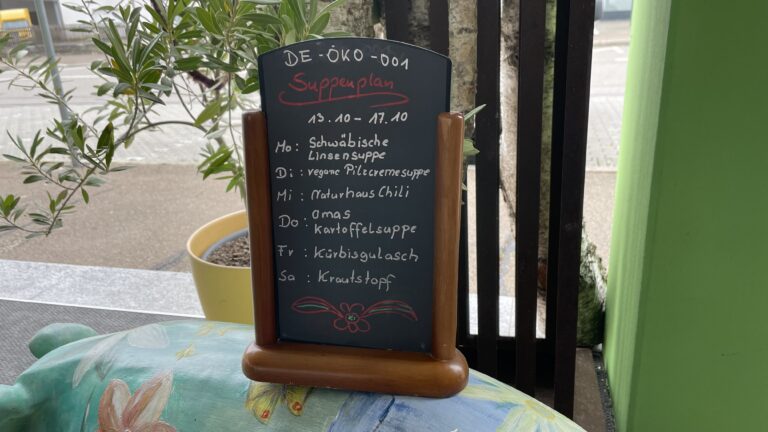 DE-ÖKO-001
Suppenplan
13.10 - 17.10
Mo: Schwäbische
Linsensuppe
Di: vegane Pilzcremesuppe
Mi: Naturhaus Chili
Do: Omas
Kartoffelsuppe
Fr: Kürbisgulasch
Sa: Krautstopf